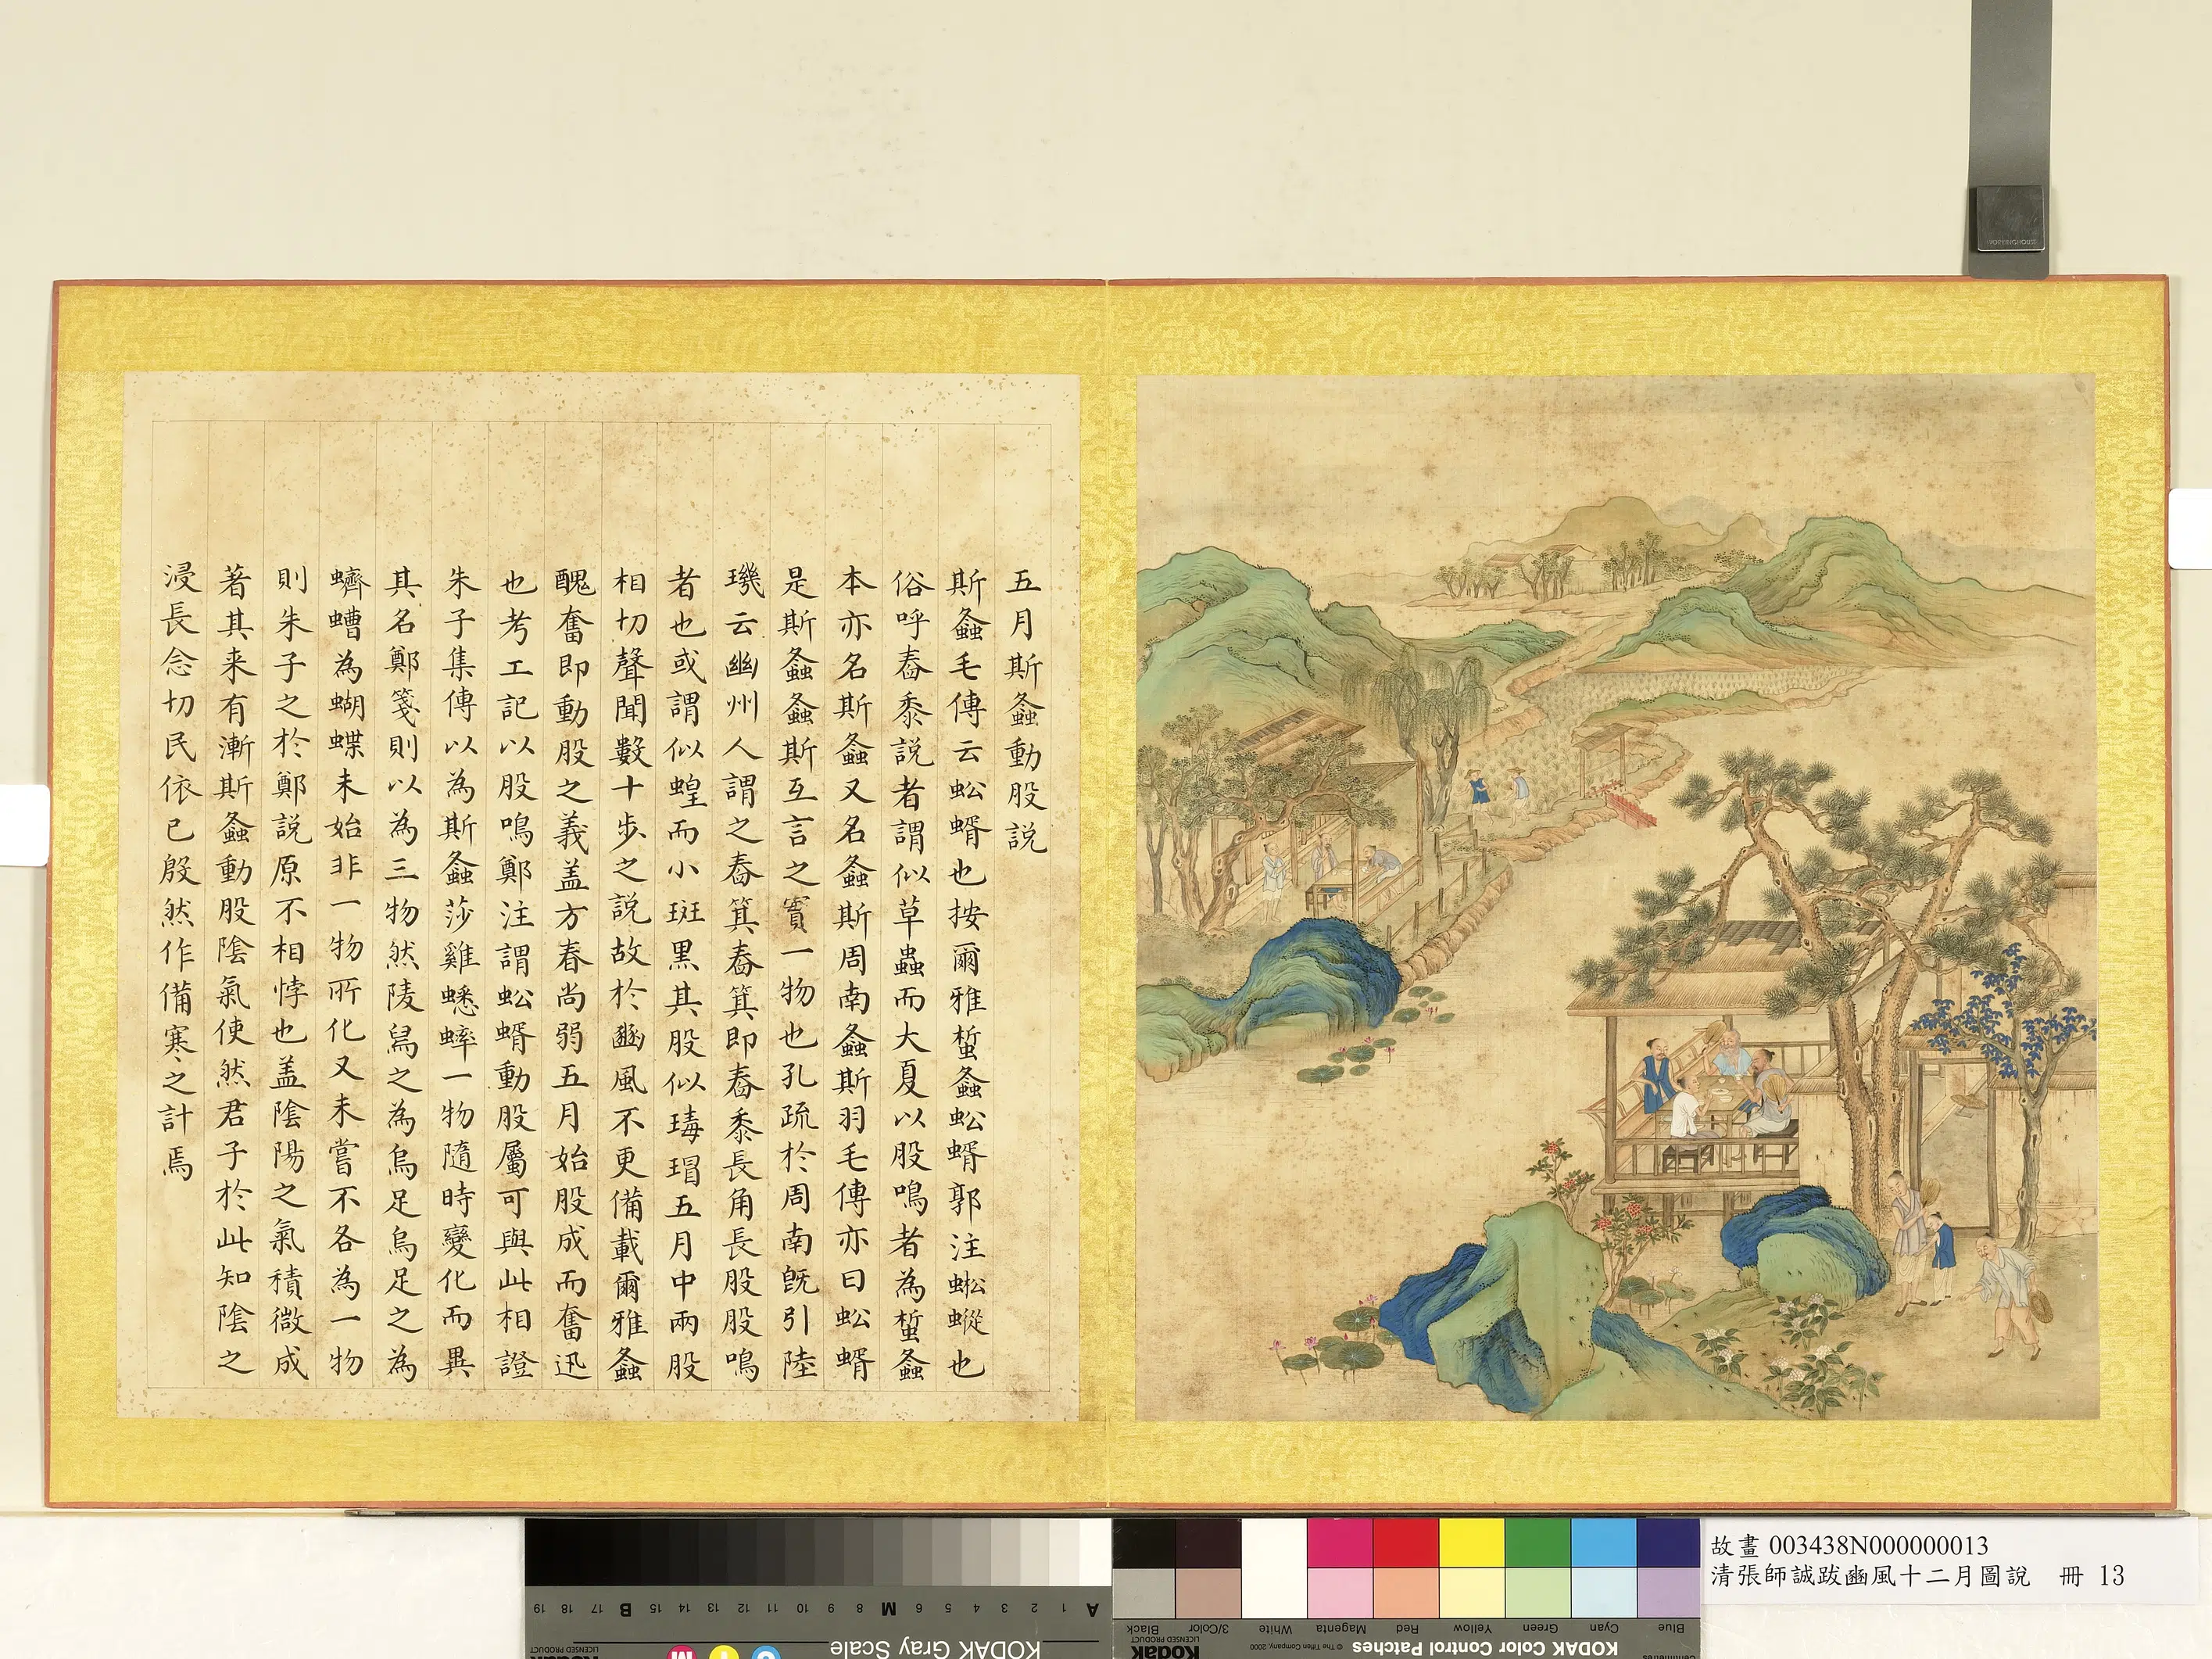 五月斯螽動股說
斯螽毛傳云蚣蝑也按爾雅蜤螽蚣蝑郭注蜙蝑也
俗呼蝽黍說者謂似草蟲而大夏以股鳴者為蜤螽
本亦名斯螽又名螽斯周南螽斯羽毛傳亦曰蚣蝑
是斯螽螽斯互言之實一物也孔疏於周南旣引陸
璣云幽州人謂之舂箕舂箕即舂黍長角長股股鳴
者也或謂似蝗而小斑黑其股似瑇瑁五月中兩股
相切聲聞數十步之說故於豳風不更備載爾雅螽
醜奮即動股之義盖方春尚弱五月始股成而奮迅
也考工記以股鳴鄭注謂蚣蝑動股屬可與此相證
朱子集傳以為斯螽莎雞蟋蟀一物隨時變化而異
其名鄭箋則以為三物然陵舄之為烏足烏足之為
蠐螬為蝴蝶未始非一物所化又未嘗不各為一物
則朱子之於鄭說原不相悖也盖陰陽之氣積微成
著其来有漸斯螽動股陰氣使然君子於此知陰之
浸長念切民依已殷然作備寒之計焉
故畫 003438N000000013
清張師誠跋豳風十二月圖說 冊 13
KODAK Gray Scale
KODAK Color Control Patches
Blue Cyan Green Yellow Red Magenta White 3/Color Black
A 1 2 3 4 5 6 M 8 9 10 11 12 13 14 15 B 17 18 19
Kodak
LICENSED PRODUCT
© The Tiffen Company, 2000